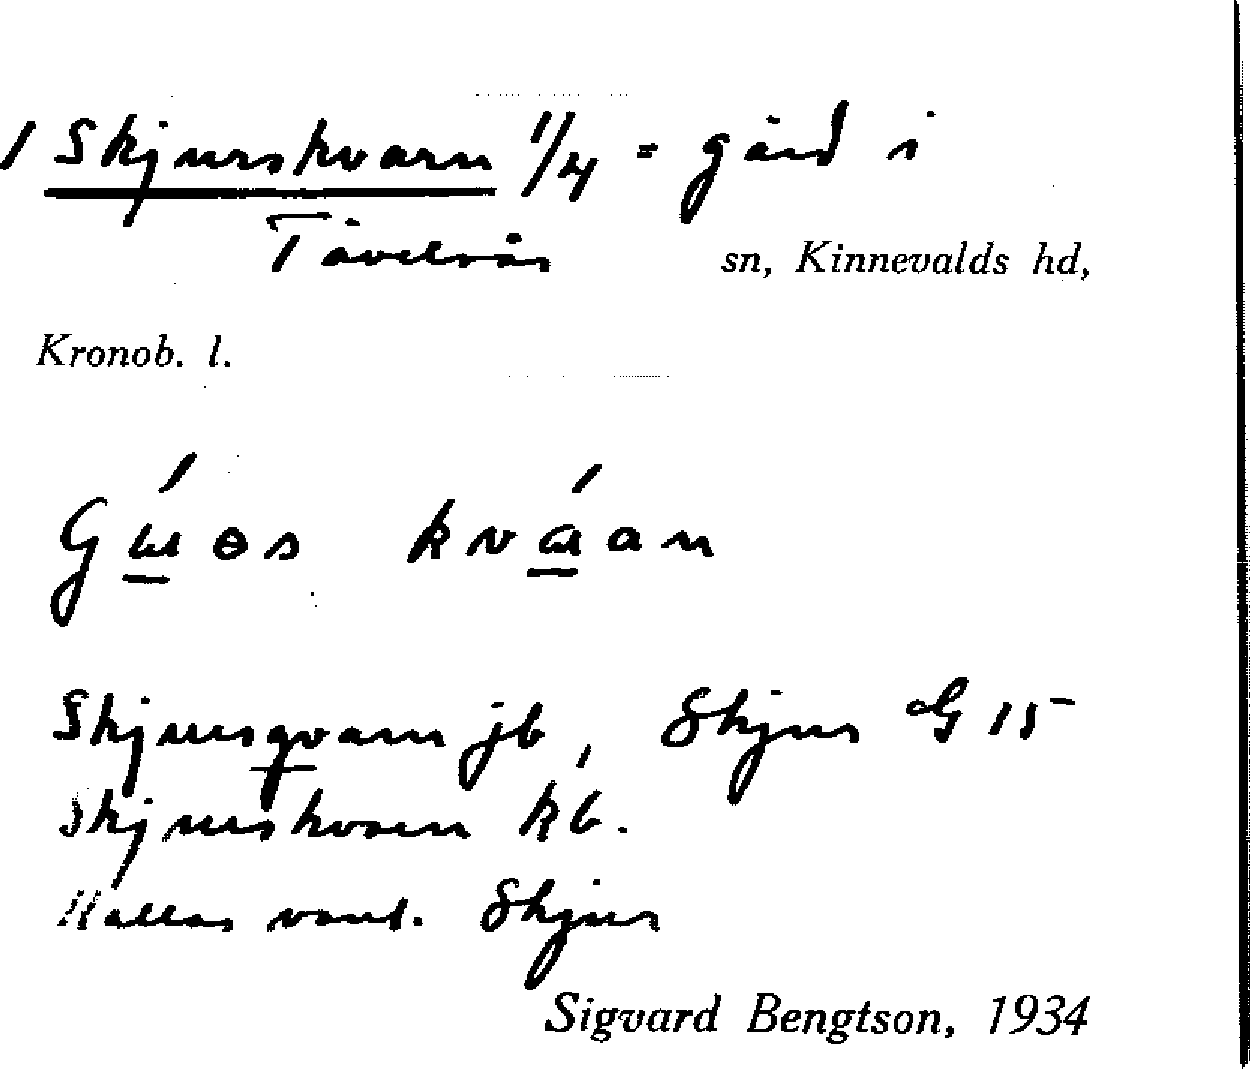 1 Skjurskvarn 1/4 = gård i
Tävelsås sn, Kinnevalds hd,
Kronob. l.
kv
Skjursqvarn jb, Skjurs G 15
Skjurskvarn kb.
Kallas vanl. Skjurs
Sigvard Bengtson, 1934